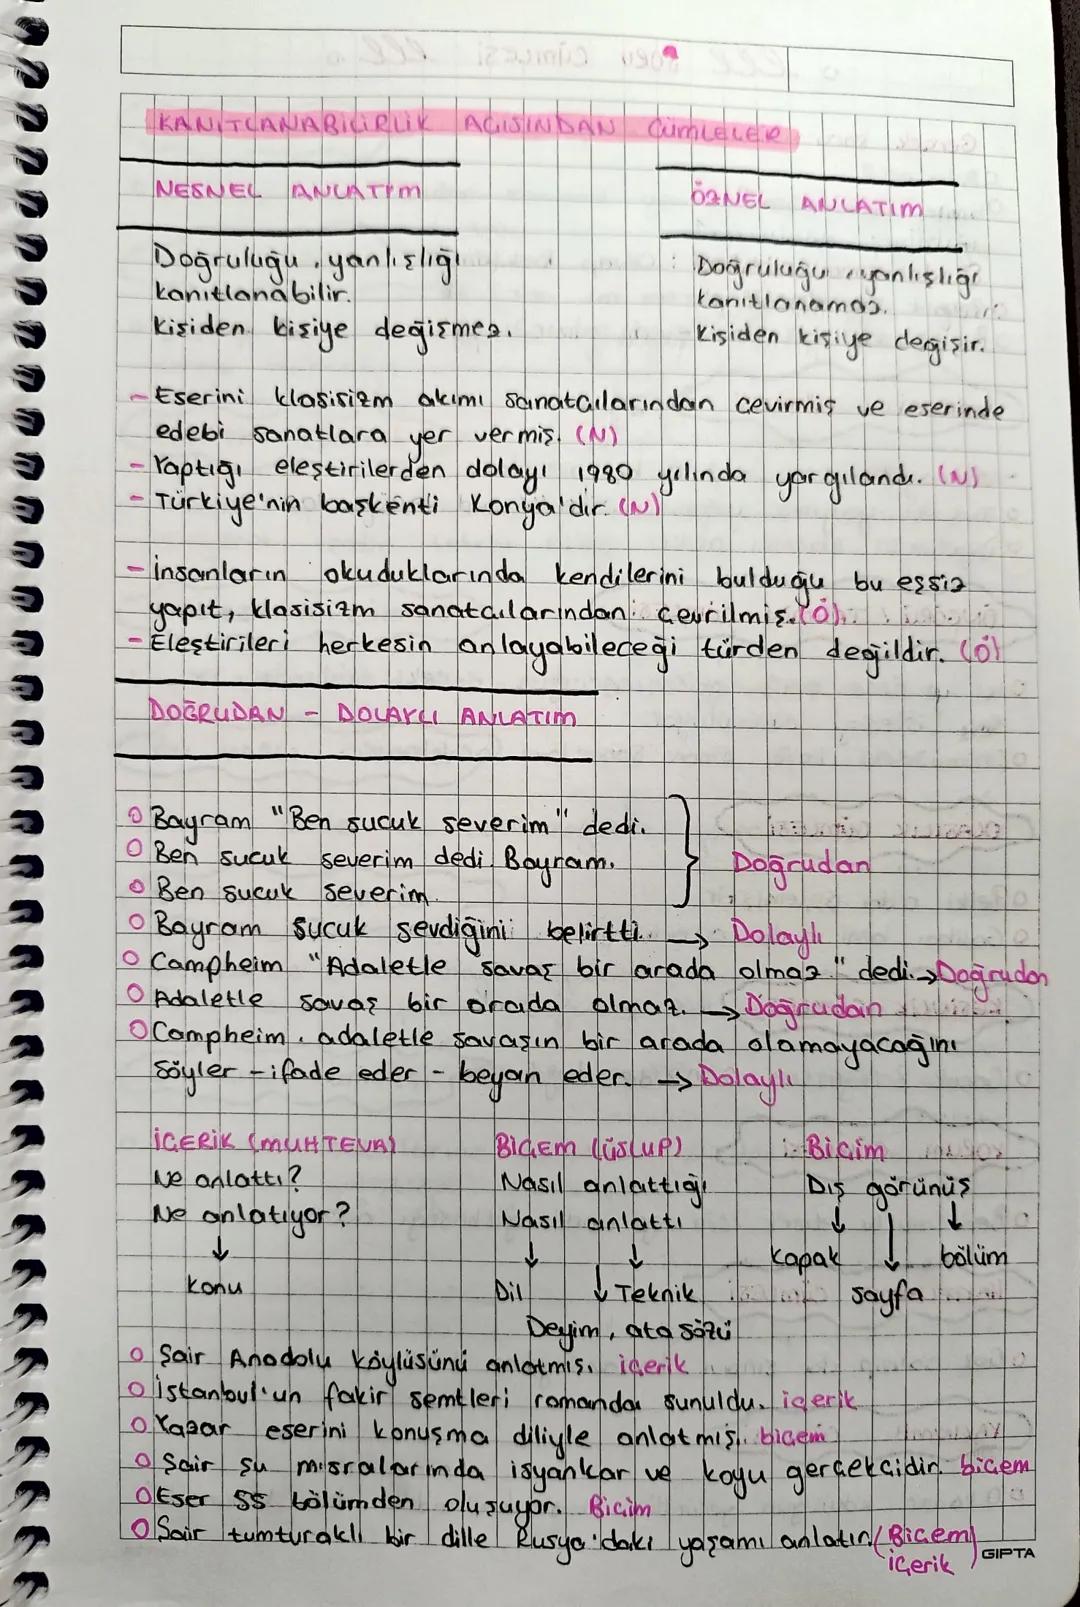 KANITLANABİLİRLİK AÇISINDAN CÜMLELER
NESNEL ANLATIM
Doğruluğu, yanlışlığı
kanıtlanabilir.
Kişiden kişiye değişmez.
ÖZNEL ANLATIM
Doğruluğu, yanlışlığı
kanıtlanamaz.
Kişiden kişiye değişir.
- Eserini klasisizm akımı sanatçılarından çevirmiş ve eserinde
edebi sanatlara yer vermiş. (N)
- Yaptığı eleştirilerden dolayı 1980 yılında yargılandı. (N)
- Türkiye'nin başkenti Konya'dır. (N)
- İnsanların okuduklarında kendilerini bulduğu bu eşsiz
yapıt, klasisizm sanatçılarından çevrilmiş. (Ö)
- Eleştirileri herkesin anlayabileceği türden değildir. (Ö)
DOĞRUDAN - DOLAYLI ANLATIM
Bayram "Ben sucuk severim" dedi.
Ben sucuk severim dedi Bayram.
Ben sucuk severim.
Doğrudan
Bayram sucuk sevdiğini belirtti. → Dolaylı
Campheim "Adaletle savaş bir arada olmaz." dedi. → Doğrudan
Adaletle savaş bir arada olmaz. → Doğrudan
Campheim, adaletle savaşın bir arada olamayacağını
söyler - ifade eder - beyan eder. → Dolaylı
İÇERİK (MUHTEVA)
Ne anlattı?
Ne anlatıyor?
↓
Konu
BİÇEM (ÜSLUP)
Nasıl anlattığı
Nasıl anlattı
↓ ↓
Dil ↓ Teknik
Deyim, ata sözü
Biçim
Dış görünüş
↓ ↓ ↓
Kapak sayfa bölüm
Şair Anadolu köylüsünü anlatmış. içerik
İstanbul'un fakir semtleri romanda sunuldu. içerik
Yazar eserini konuşma diliyle anlatmış. biçem
Şair şu mısralarında isyankar ve koyu gerçekçidir. biçem
Eser 55 bölümden oluşuyor. Biçim
Şair tumturaklı bir dille Rusya'daki yaşamı anlatır. (Biçem)
içerik
GIPTA